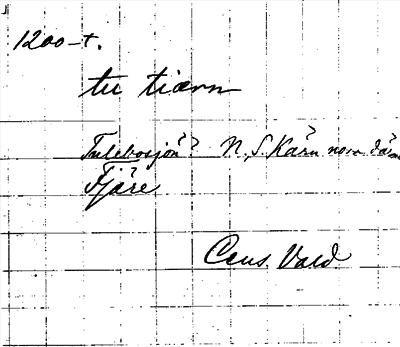 1200-t.
tu tiærn
Tulebosjön? N. S. Kärn norr
Fjäre
Cens. Vald